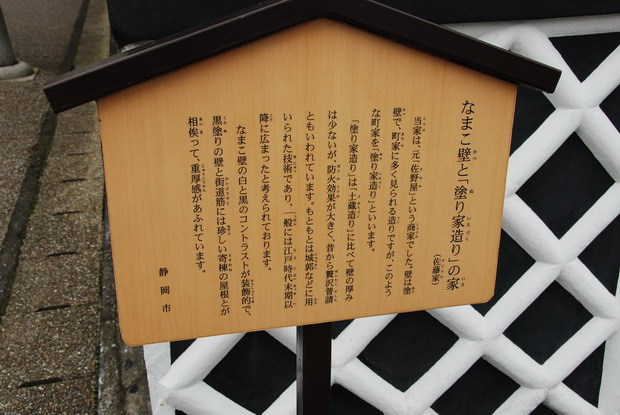 なまこ壁と「塗り家造り」の家
(佐藤家)
当家は、元「佐野屋」という商家でした。壁は塗
壁で、町家に多く見られる造りですが、このよう
な町家を「塗り家造り」といいます。
「塗り家造り」は「土蔵造り」に比べて壁の厚み
は少ないが、防火効果が大きく、昔から贅沢普請
ともいわれています。もともとは城郭などに用
いられた技術であり、一般には江戸時代末期以
降に広まったと考えられております。
なまこ壁の白と黒のコントラストが装飾的で、
黒塗りの壁と街道筋には珍しい寄棟の屋根とが
相俟って、重厚感があふれています。
静岡市